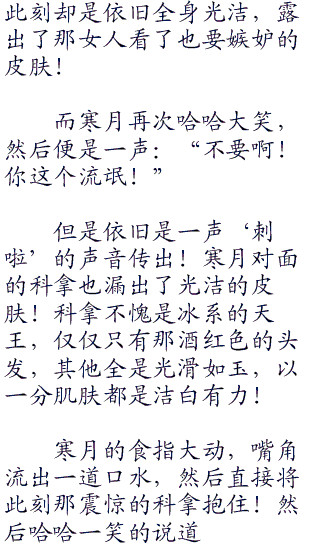 此刻却是依旧全身光洁，露
出了那女人看了也要嫉妒的
皮肤！
而寒月再次哈哈大笑，
然后便是一声：“不要啊！
你这个流氓！”
但是依旧是一声‘刺
啦’的声音传出！寒月对面
的科拿也漏出了光洁的皮
肤！科拿不愧是冰系的天
王，仅仅只有那酒红色的头
发，其他全是光滑如玉，以
一分肌肤都是洁白有力！
寒月的食指大动，嘴角
流出一道口水，然后直接将
此刻那震惊的科拿抱住！然
后哈哈一笑的说道